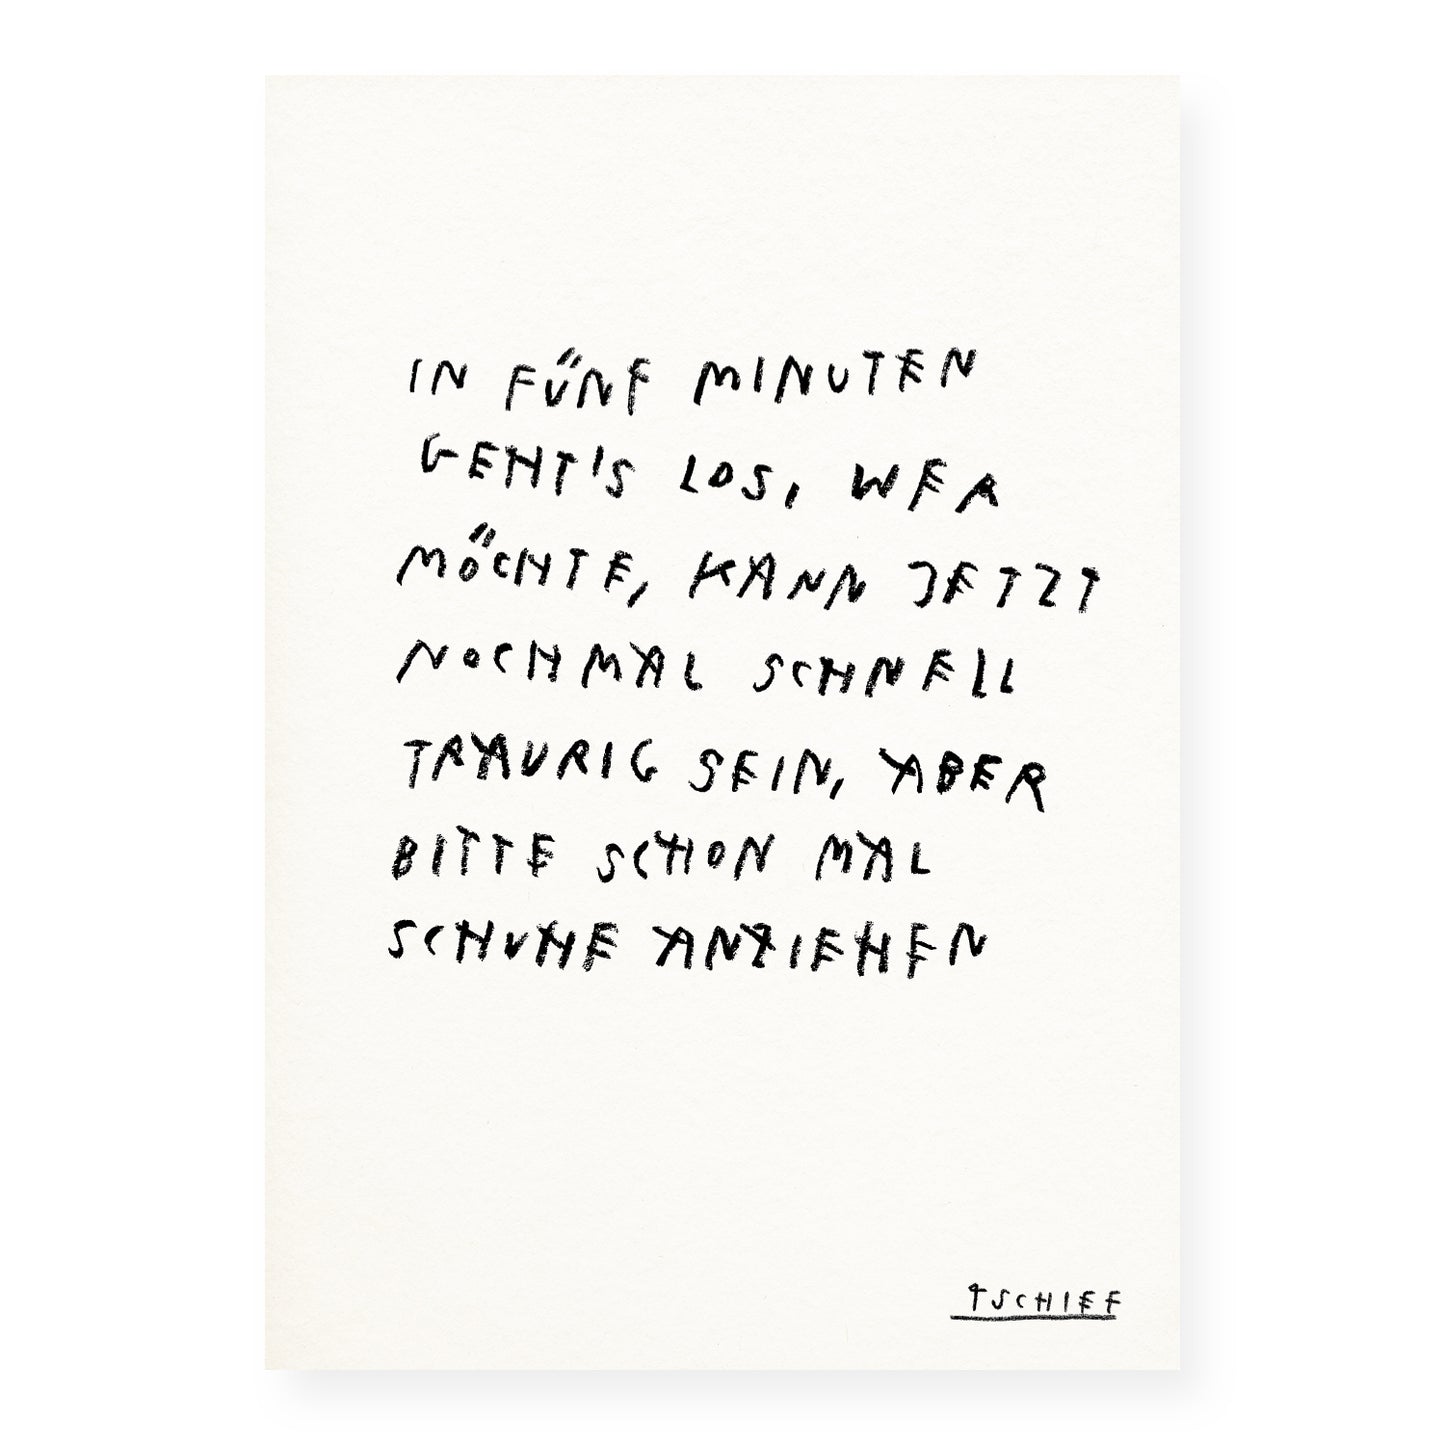 IN FÜNF MINUTEN
GEHT'S LOS, WER
MÖCHTE, KANN JETZT
NOCHMAL SCHNELL
TRAURIG SEIN, ABER
BITTE SCHON MAL
SCHUHE ANZIEHEN
TSCHIEF